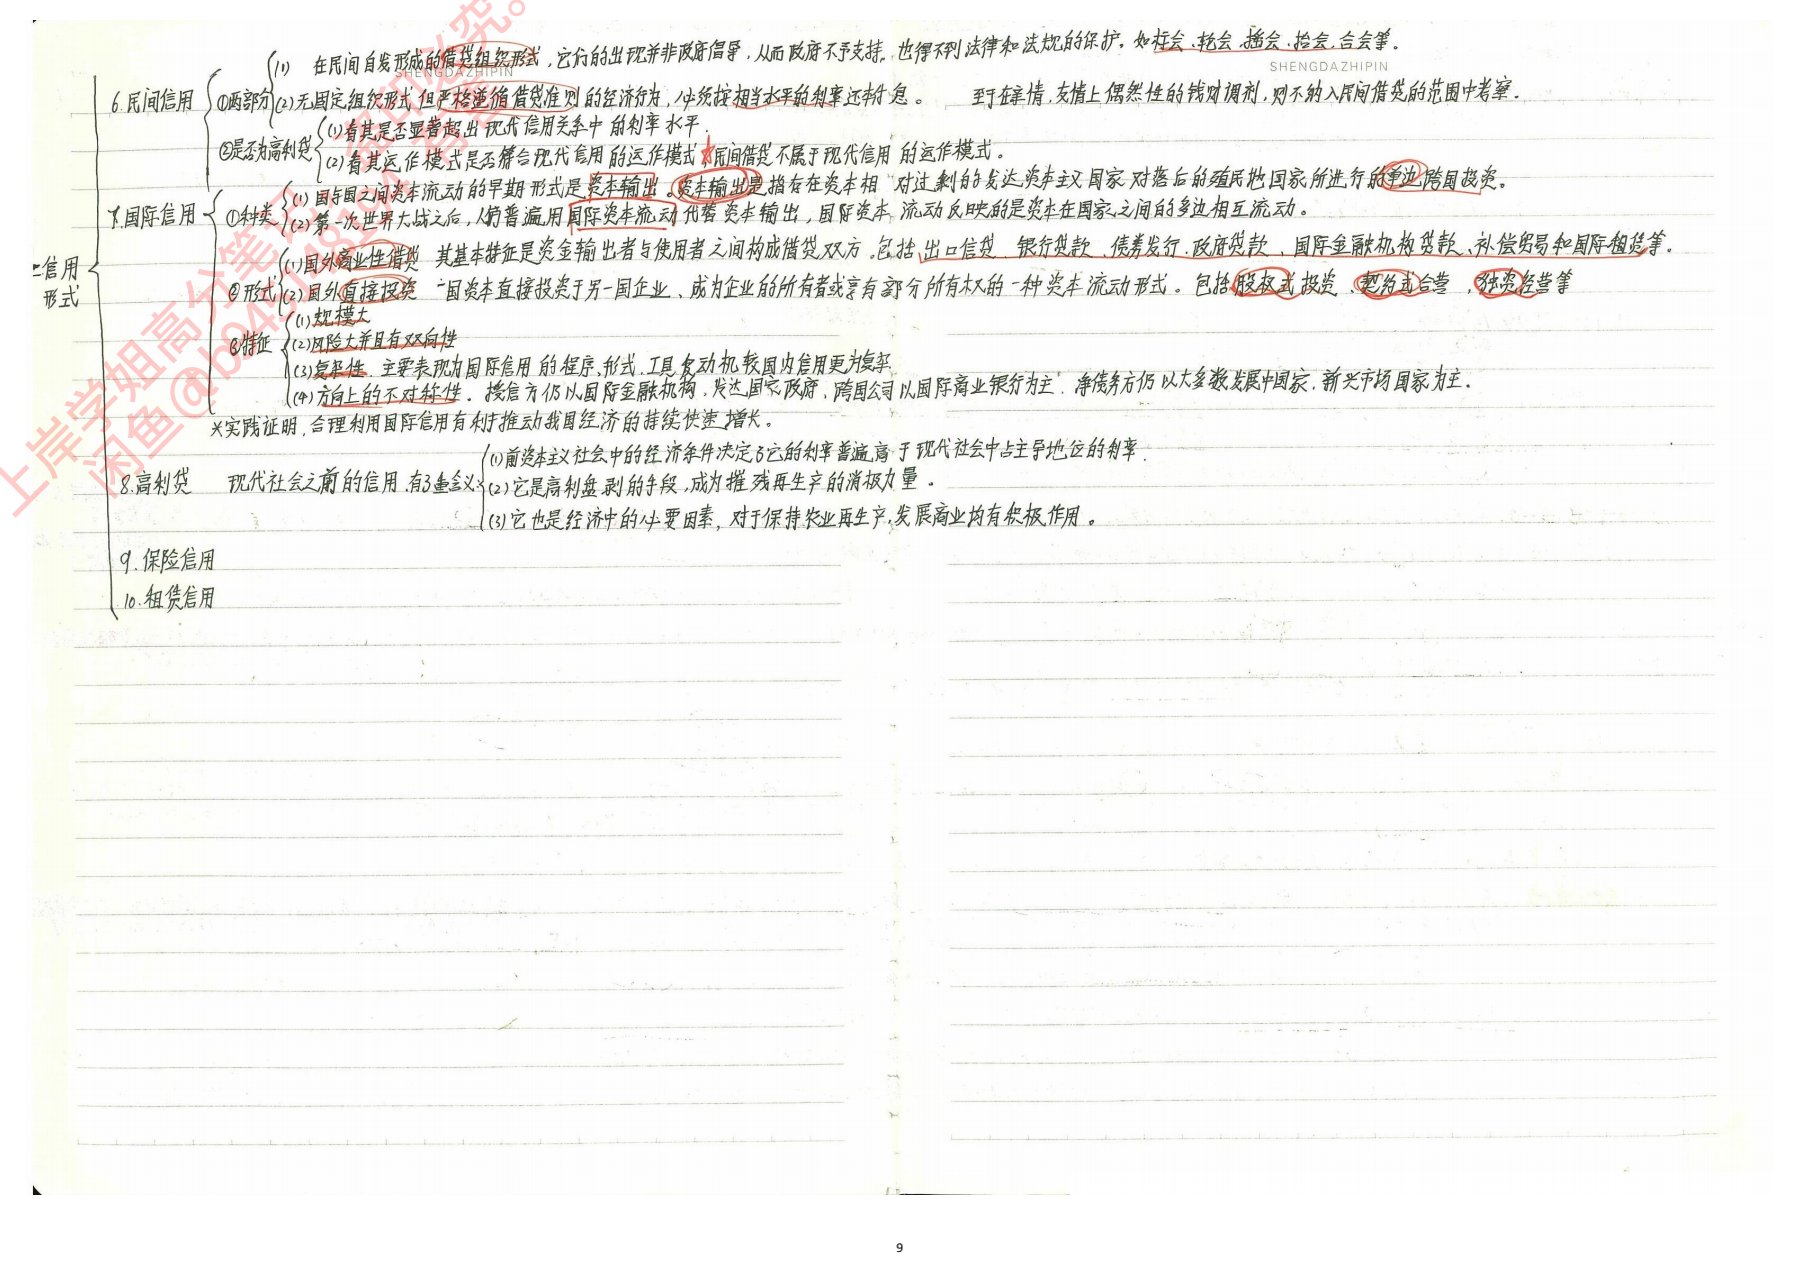 (1) 在民间自发形成的借贷组织形式，它们的出现并非政府倡导，从而政府不予支持，也得不到法律和法规的保护。如标会、轮会、摇会、抬会、合会等。
SHENGDAZHIPIN
SHENGDAZHIPIN
6.民间信用
①两部分
(2)无固定组织形式但严格遵循借贷准则的经济行为，必须按相当水平的利率还本付息。 至于在亲情，友情上偶然性的钱财调剂，则不纳入民间借贷的范围中考察.
②是否为高利贷
(1)看其是否显著超出现代信用关系中的利率水平.
(2)看其运作模式是否符合现代信用的运作模式 ★民间借贷不属于现代信用的运作模式。
7.国际信用
①种类
(1)国与国之间资本流动的早期形式是资本输出。资本输出是指存在资本相对过剩的发达资本主义国家对落后的殖民地国家所进行的单边跨国投资。
(2)第一次世界大战之后，人们普遍用国际资本流动代替资本输出，国际资本流动反映的是资本在国家之间的多边相互流动。
二信用形式
②形式
(1)国外商业性借贷 其基本特征是资金输出者与使用者之间构成借贷双方。包括出口信贷、银行贷款、债券发行、政府贷款、国际金融机构贷款、补偿贸易和国际租赁等。
(2)国外直接投资 一国资本直接投资于另一国企业、成为企业的所有者或享有部分所有权的一种资本流动形式。包括股权式投资、契约式合营，独资经营等
③特征
(1)规模大
(2)风险大并且有双向性
(3)复杂性.主要表现为国际信用的程序、形式、工具及动机较国内信用更为复杂
(4)方向上的不对称性.授信方仍以国际金融机构、发达国家政府、跨国公司以国际商业银行为主.净债务方仍以大多数发展中国家、新兴市场国家为主.
※实践证明，合理利用国际信用有利于推动我国经济的持续快速增长。
8.高利贷 现代社会之前的信用.有3重含义
(1)前资本主义社会中的经济条件决定了它的利率普遍高于现代社会中占主导地位的利率.
(2)它是高利盘剥的手段，成为摧残再生产的消极力量。
(3)它也是经济中的必要因素，对于保持农业再生产，发展商业均有积极作用。
9.保险信用
10.租赁信用
上岸学姐高分笔记
闲鱼@b
9